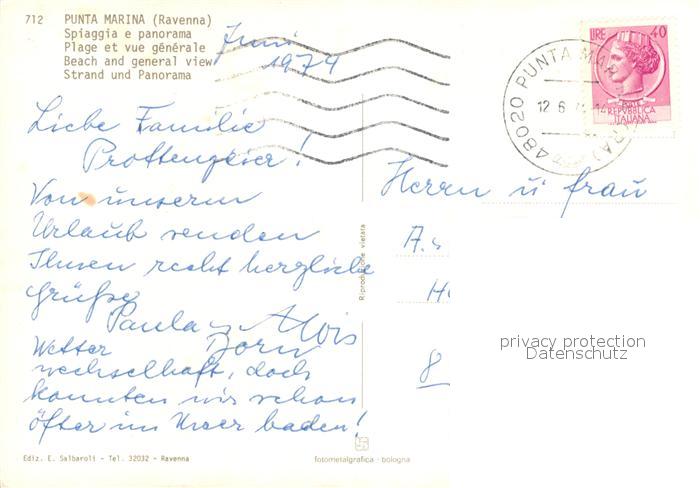 712 PUNTA MARINA (Ravenna)
Spiaggia e panorama
Plage et vue générale
Beach and general view
Strand und Panorama
Juni
1974
LIRE 40
POSTE
REPUBBLICA
ITALIANA
48020 PUNTA MAR (RA)
12 6
Liebe Familie
Prottengeier!
Von unserem
Urlaub senden
Ihnen recht herzliche
Grüße
Paula u Alois
Dorn
Wetter
wechselhaft, doch
konnten wir schon
öfter im Meer baden!
Herrn u frau
A.
8
Riproduzione vietata
privacy protection
Datenschutz
Ediz. E. Salbaroli - Tel. 32032 - Ravenna
fotometalgrafica - bologna